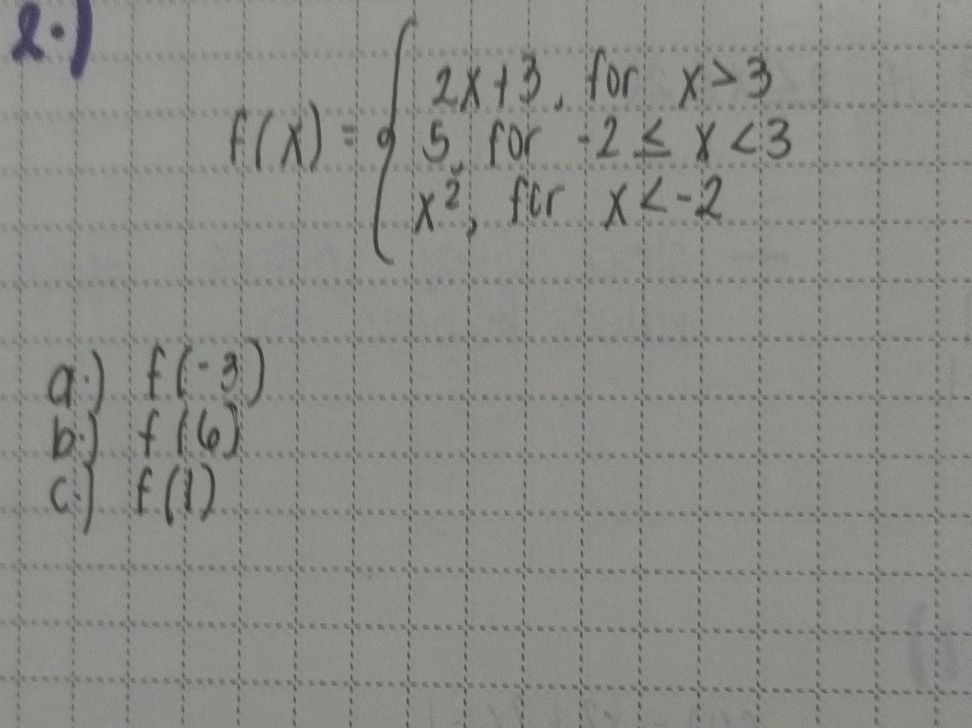 2.)
2x+3, for x>3
f(x) = { 5, for -2 ≤ x < 3
x², for x < -2
a.) f(-3)
b.) f(6)
c.) f(1)